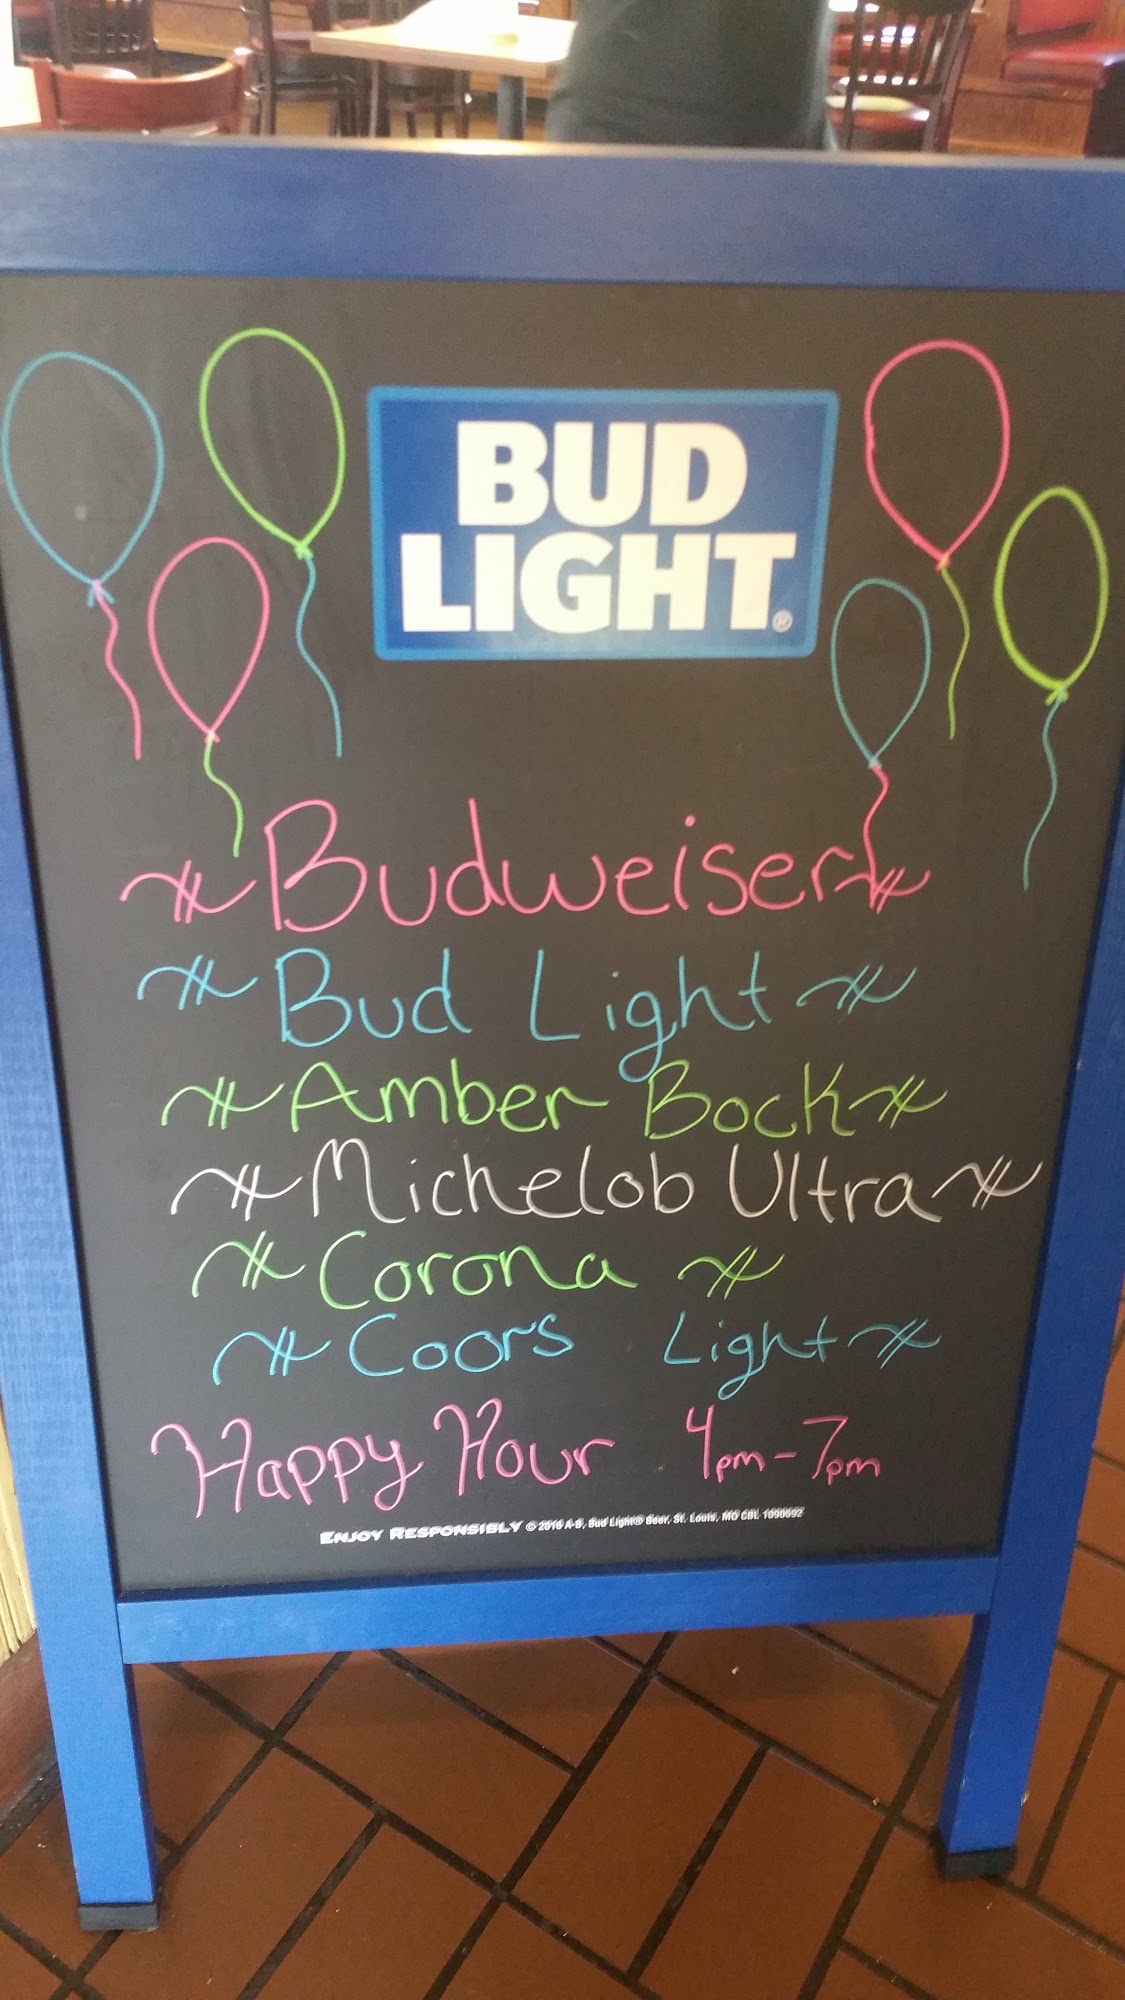 BUD
LIGHT®
Budweiser
Bud Light
Amber Bock
Michelob Ultra
Corona
Coors Light
Happy Hour 4pm-7pm
ENJOY RESPONSIBLY © 2016 A-B, Bud Light® Beer, St. Louis, MO CBL 1090692